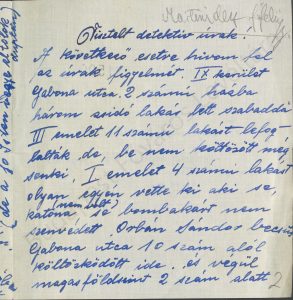 Tisztelt detektiv urak!
A következő esetre hivom fel
az úrak figyelmét. IX kerület
Gabona utca. 2 számú házba
három zsidó lakás lett szabaddá
III emelet 11 számú lakást lefog-
lalták de, be nem költözött még
senki, I emelet 4 számú lakást
olyan egyén vette ki aki se,
katona (nem volt) se bombakárt nem
szenvedett. Orbán Sándor
Gabona utca 10 szám alól
költözködött ide. és végül
magasföldszint 2 szám alatt
2